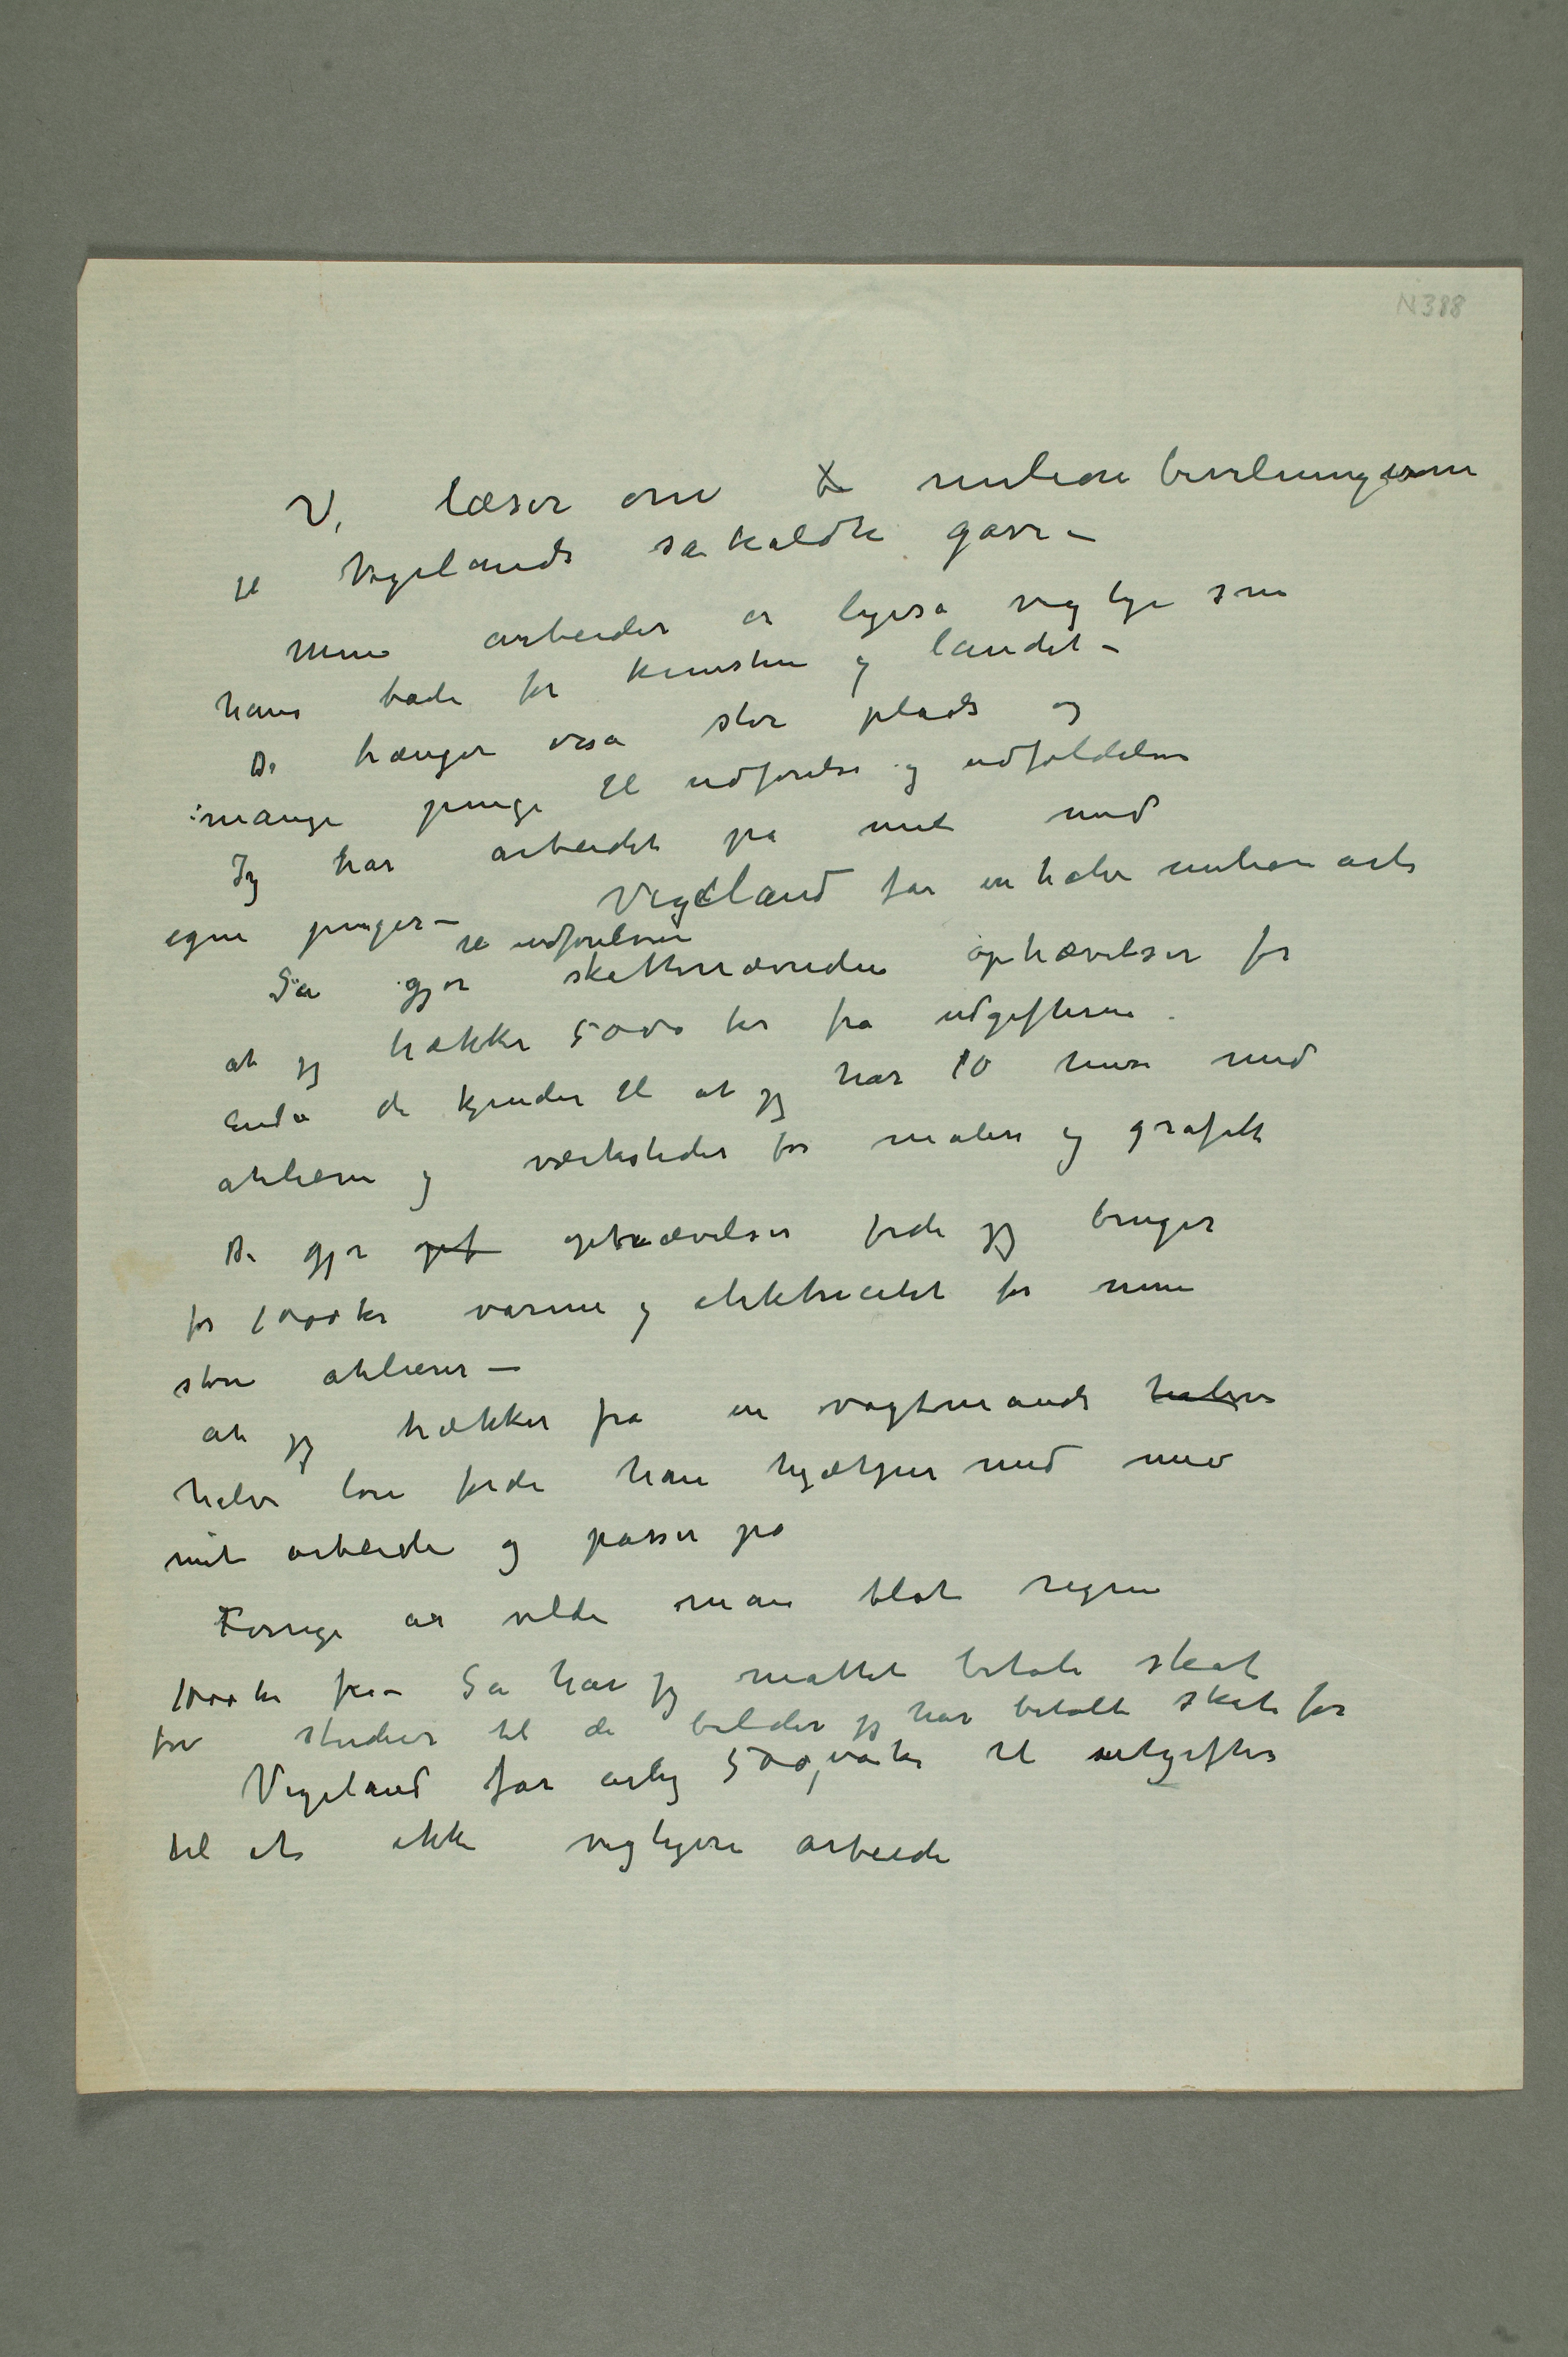 N 388
Vi læser om milion bevilningerne
til Vigelands såkaldte gave –
Mine arbeider er ligeså vigtige som
hans både for kunsten og landet –
De trænger også stor plads og
mange penge til udførelse og udfoldelse
Jeg har arbeidet på mit med
egne penger – Vigeland får en halv milion årli
til udførelsen
Så gjør skattenævnden ophævelser for
at jeg trækker 5000 kr fra udgifterne.
Endå de kjender til at jeg har 10 huse med
atelierer og værksteder for maleri og grafik
De gjør opf ophævelser fordi jeg bruger
for 1000 kr varme og elektricitet for mine
store atelierer –
at jeg trækker fra en vagtmands halve
halve løn fordi han hjælper med
mit arbeide og passer på
Forrige år vilde man blot regne
1000 kr fra – Så har jeg måttet betale skat
for studier til de billeder jeg har betalt skat for
Vigeland får årlig 500,000 kr til utgifter
til et ikke vigtigere arbeide